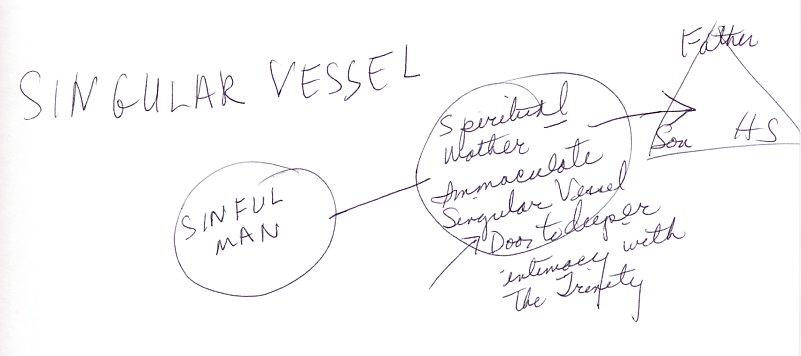 SINGULAR VESSEL
SINFUL
MAN
Spiritual
Mother
Immaculate
Singular Vessel
Door to deeper
intimacy with
The Trinity
Father
Son HS